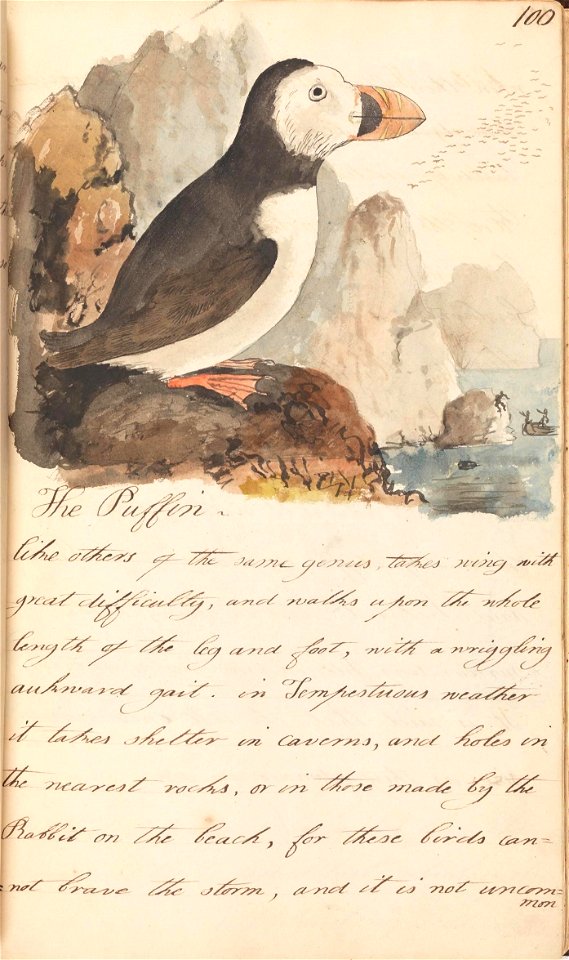 100
The Puffin.
like others of the same genus, takes wing with
great difficulty, and walks upon the whole
length of the leg and foot, with a wriggling
aukward gait. in Tempestuous weather
it takes shelter in caverns, and holes in
the nearest rocks, or in those made by the
Rabbit on the beach, for these birds can=
=not brave the storm, and it is not uncom=
mon